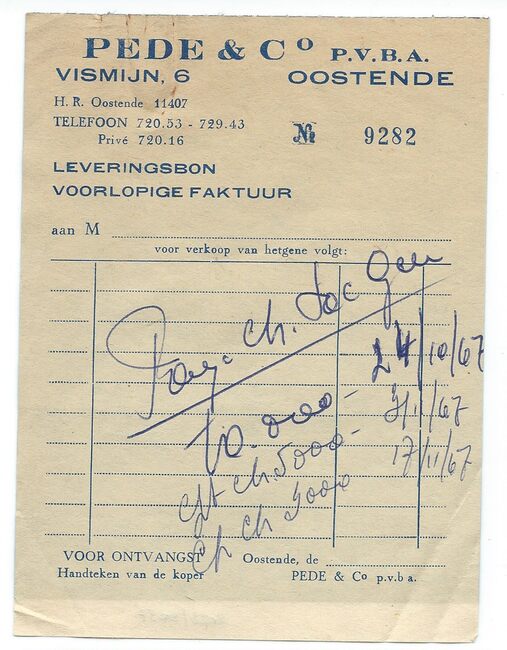 PEDE & Cº P.V.B.A.
VISMIJN, 6 OOSTENDE
H. R. Oostende 11407
TELEFOON 720.53 - 729.43
Privé 720.16
№ 9282
LEVERINGSBON
VOORLOPIGE FAKTUUR
aan M
voor verkoop van hetgene volgt:
Pay. ch. Soc Gen
24/10/67
10.000 -
7/11/67
ch. 5000 -
17/11/67
ch
VOOR ONTVANGST Oostende, de
Handteken van de koper PEDE & Co p.v.b a.